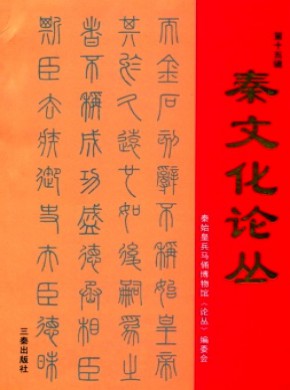 秦文化论丛
秦始皇兵马俑博物馆《论丛》编委会
而金石刻辭不稱始皇帝
其於久遠也如後嗣為之
者不稱成功盛德丞相臣
斯臣去疾御史夫臣德昧
三秦出版社